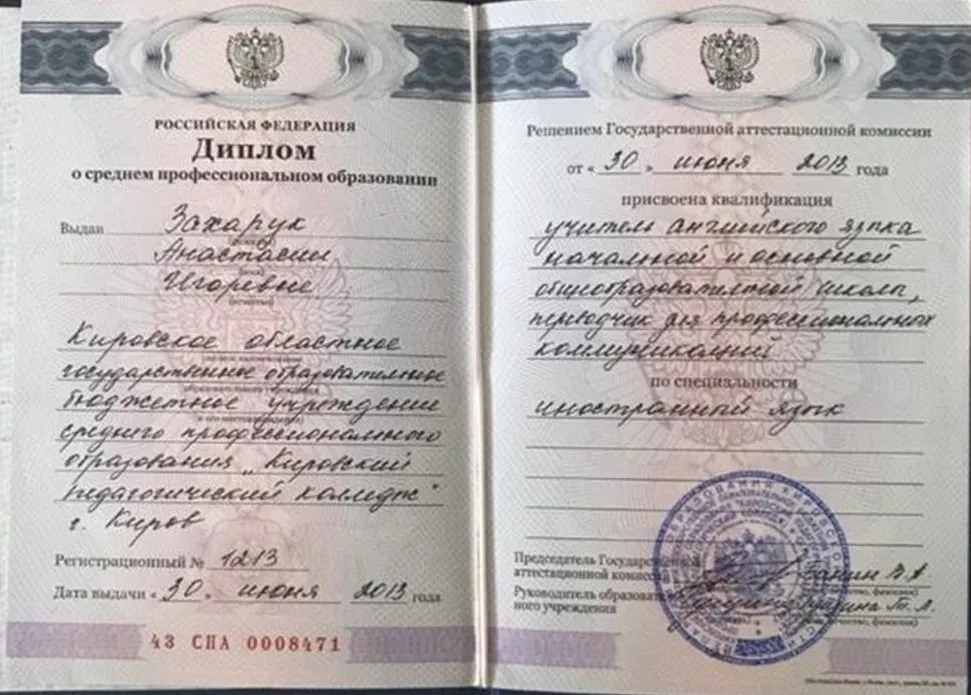 РОССИЙСКАЯ ФЕДЕРАЦИЯ
Диплом
о среднем профессиональном образовании
Выдан Захарук
Анастасии
Игоревне
Кировское областное
государственное образовательное
бюджетное учреждение
среднего профессионального
образования „Кировский
педагогический колледж"
г. Киров
Регистрационный № 1213
Дата выдачи « 30 » июня 2013 года
43 СПА 0008471
Решением Государственной аттестационной комиссии
от « 30 » июня 2013 года
присвоена квалификация
учитель английского языка
начальной и основной
общеобразовательной школы,
переводчик для профессиональных
коммуникаций
по специальности
иностранный язык
Председатель Государственной
аттестационной комиссии
Руководитель образовательного учреждения